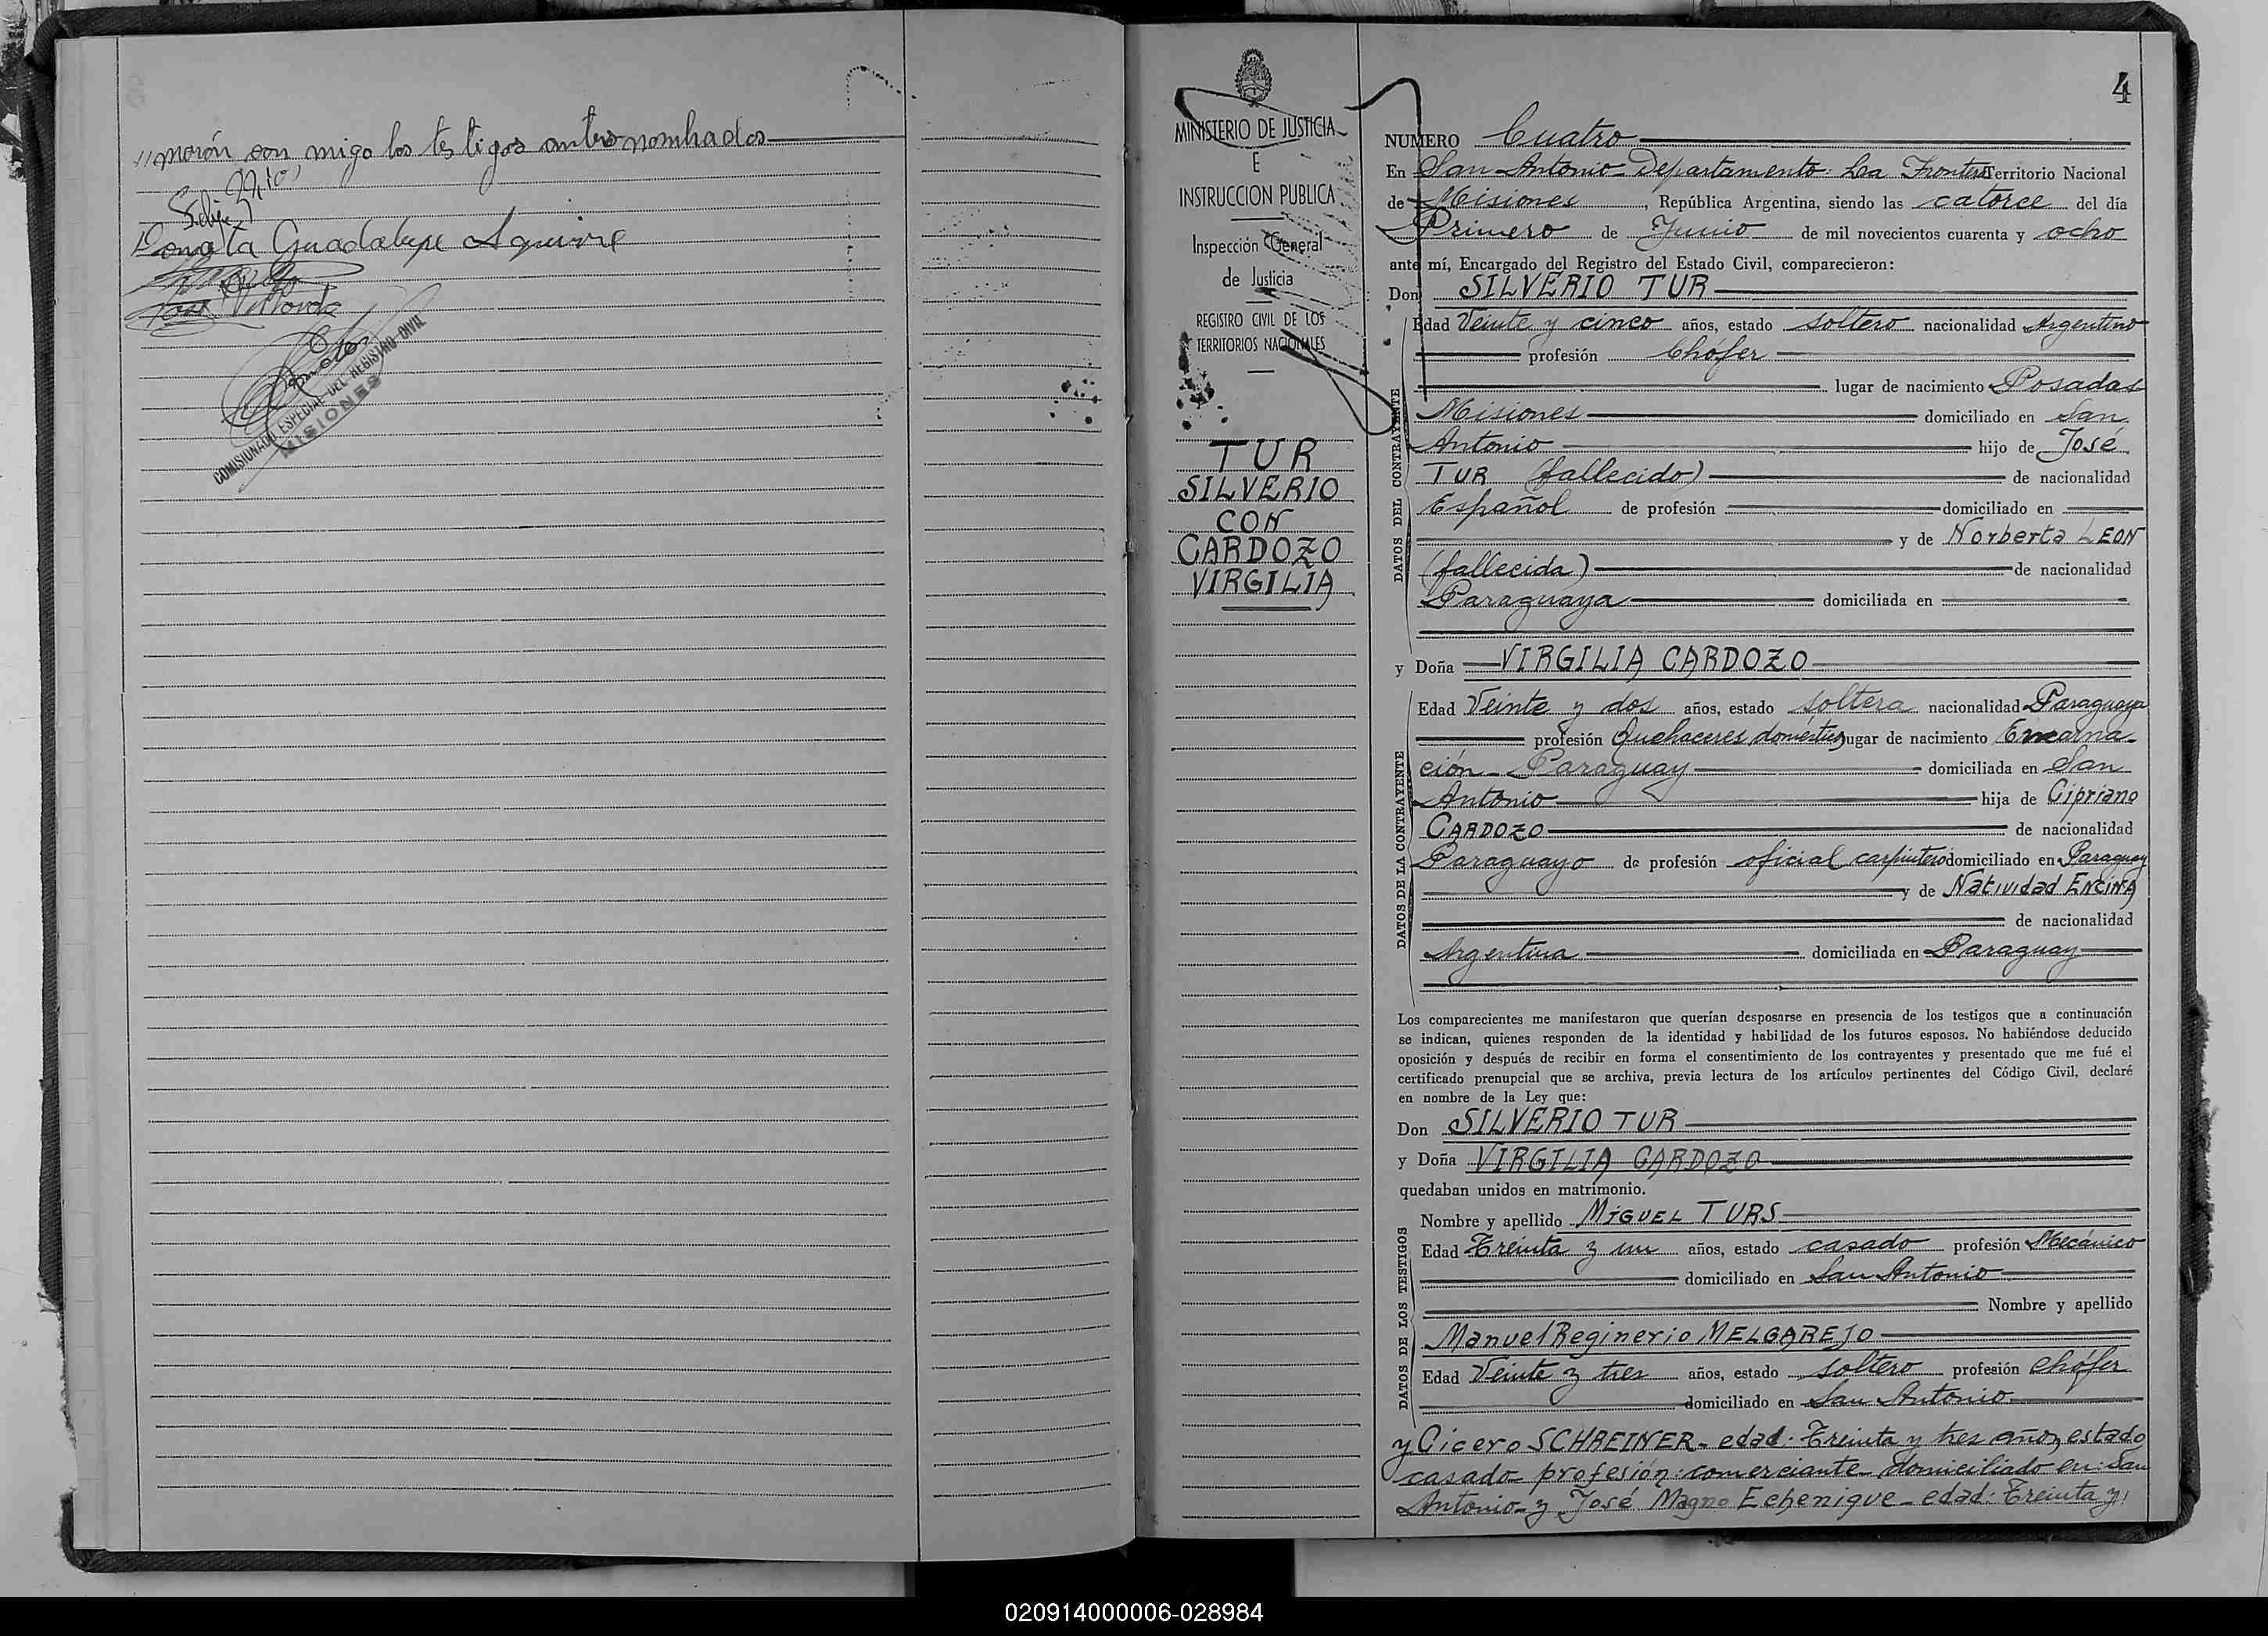 // marón con migo los testigos antes nombrados
Donata Guadalupe Aguirre
COMISIONADO ESPECIAL DEL REGISTRO CIVIL
MISIONES
MINISTERIO DE JUSTICIA
E
INSTRUCCION PUBLICA
Inspección General
de Justicia
REGISTRO CIVIL DE LOS
TERRITORIOS NACIONALES
TUR
SILVERIO
CON
CARDOZO
VIRGILIA
4
NUMERO Cuatro
En San Antonio - Departamento: La Frontera Territorio Nacional
de Misiones, República Argentina, siendo las catorce del día
Primero de Junio de mil novecientos cuarenta y ocho
ante mí, Encargado del Registro del Estado Civil, comparecieron:
Don SILVERIO TUR
DATOS DEL CONTRAYENTE
Edad Veinte y cinco años, estado soltero nacionalidad Argentino
profesión Chofer
lugar de nacimiento Posadas
Misiones domiciliado en San
Antonio hijo de José
TUR (fallecido) de nacionalidad
Español de profesión domiciliado en
y de Norberta LEON
(fallecida) de nacionalidad
Paraguaya domiciliada en
y Doña VIRGILIA CARDOZO
DATOS DE LA CONTRAYENTE
Edad Veinte y dos años, estado soltera nacionalidad Paraguaya
profesión Quehaceres domésticos lugar de nacimiento Encarna-
ción - Paraguay domiciliada en San
Antonio hija de Cipriano
CARDOZO de nacionalidad
Paraguayo de profesión oficial carpintero domiciliado en Paraguay
y de Natividad ENCINA
de nacionalidad
Argentina domiciliada en Paraguay
Los comparecientes me manifestaron que querían desposarse en presencia de los testigos que a continuación
se indican, quienes responden de la identidad y habilidad de los futuros esposos. No habiéndose deducido
oposición y después de recibir en forma el consentimiento de los contrayentes y presentado que me fué el
certificado prenupcial que se archiva, previa lectura de los artículos pertinentes del Código Civil, declaré
en nombre de la Ley que:
Don SILVERIO TUR
y Doña VIRGILIA CARDOZO
quedaban unidos en matrimonio.
DATOS DE LOS TESTIGOS
Nombre y apellido MIGUEL TURS
Edad Treinta y un años, estado casado profesión Mecánico
domiciliado en San Antonio
Nombre y apellido
Manuel Reginerio MELGAREJO
Edad Veinte y tres años, estado soltero profesión chófer
domiciliado en San Antonio
y Cicero SCHREINER - edad: Treinta y tres años, estado
casado - profesión: comerciante - domiciliado en: San
Antonio - y José Magno Echenique - edad: Treinta y
020914000006-028984